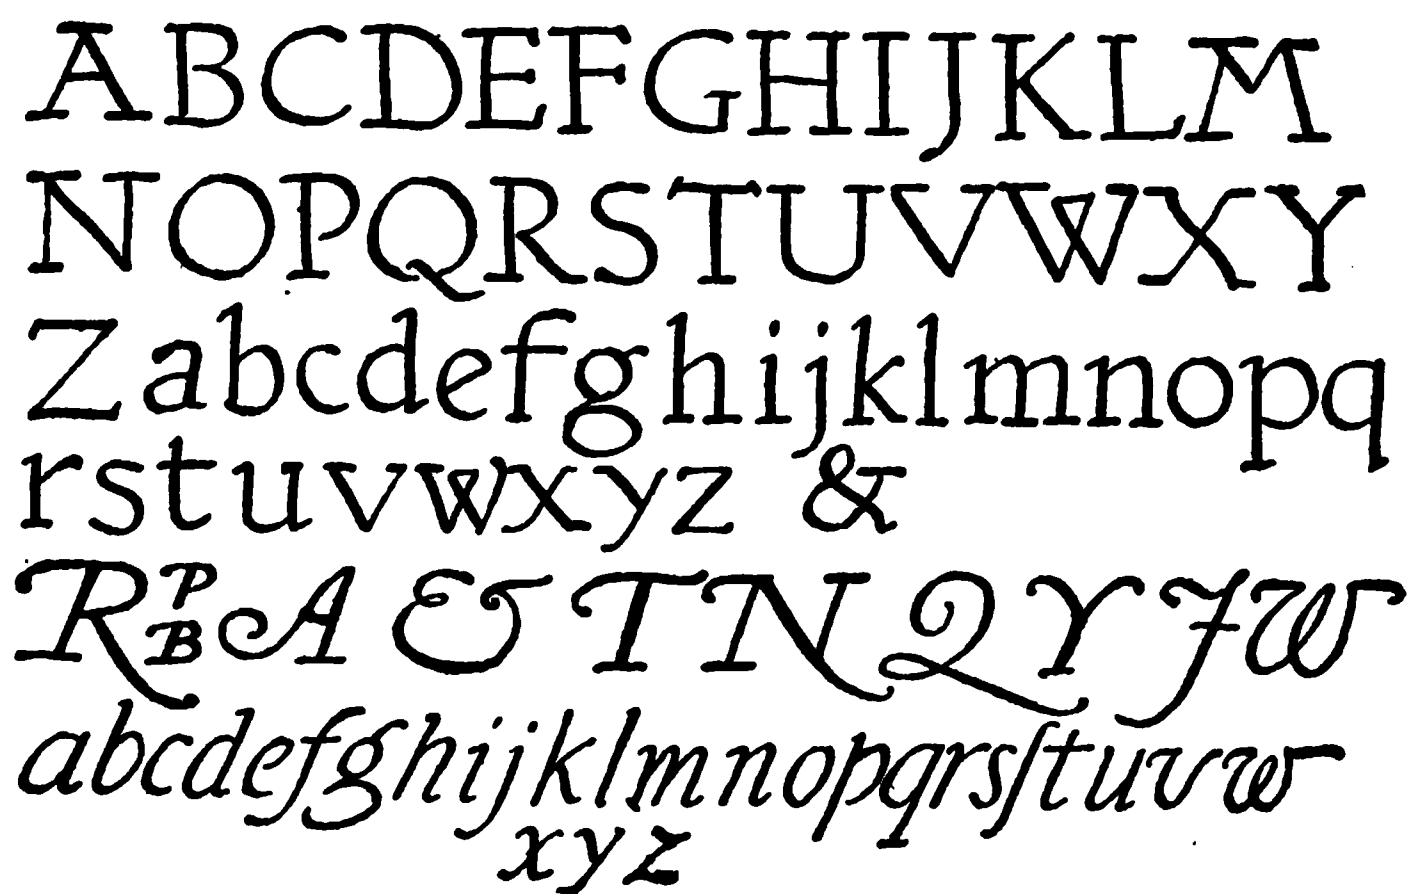 ABCDEFGHIJKLM
NOPQRSTUVWXY
Zabcdefghijklmnopq
rstuvwxyz &
R P B A & T N Q Y J W
abcdefghijklmnopqrsſtuvw
xyz